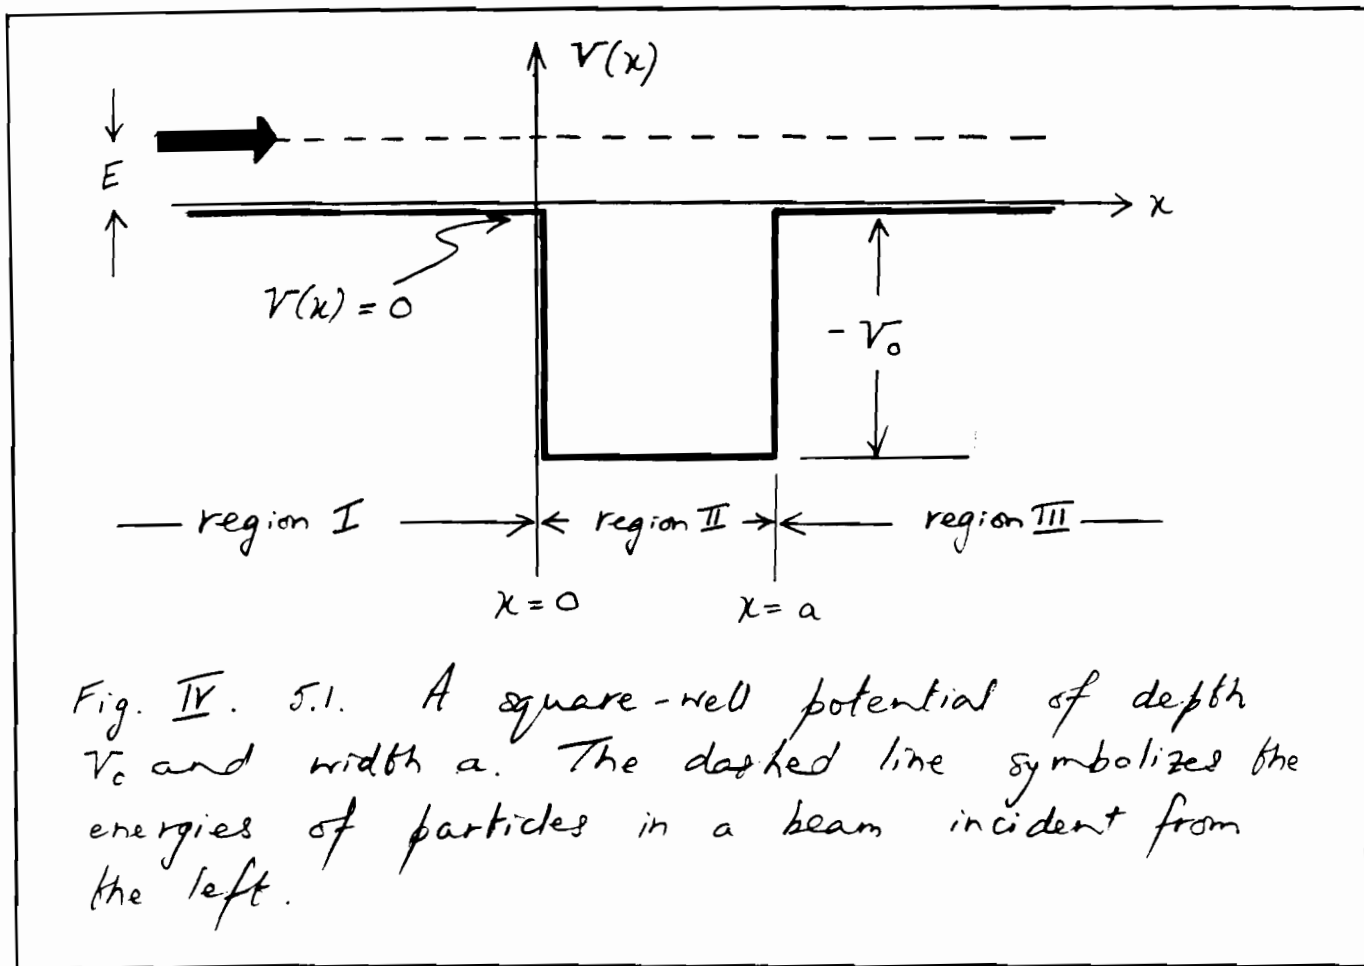 V(x)
E
x
V(x) = 0
- V₀
region I
region II
region III
x = 0
x = a
Fig. IV. 5.1. A square-well potential of depth
V₀ and width a. The dashed line symbolizes the
energies of particles in a beam incident from
the left.